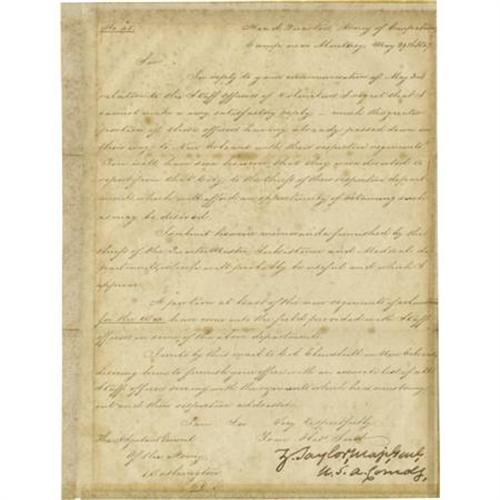 Head Quarters, Army of Occupation
Camp near Monterey, May 29th 1847
Sir
In reply to your communication of May 3rd
relation to the Staff officers of Volunteers I regret that I
cannot make a very satisfactory reply - much the greater
portion of these officers having already passed down on
their way to New Orleans with their respective regiments.
You will have seen however that they were directed to
report from that City, to the Chiefs of their respective depart
ments which will afford an opportunity of obtaining such
as may be desired.
I submit herewith memoranda furnished by the
Chiefs of the Quarter Master, Subsistence and Medical de
partments, which will probably be useful and which I
approve.
A portion at least of the new regiments of volunteers
for the War have come into the field provided with Staff
officers in some of the above departments.
I write by this mail to Col. Churchill in New Orleans
desiring him to furnish your office with an accurate list of all
Staff officers serving with the regiments which he is mustering
out and their respective addresses.
I am Sir Very respectfully
Your Obt Servt
The Adjutant General
Of the Army
Washington
Z. Taylor Maj. Genl
U.S.A. Comdg.